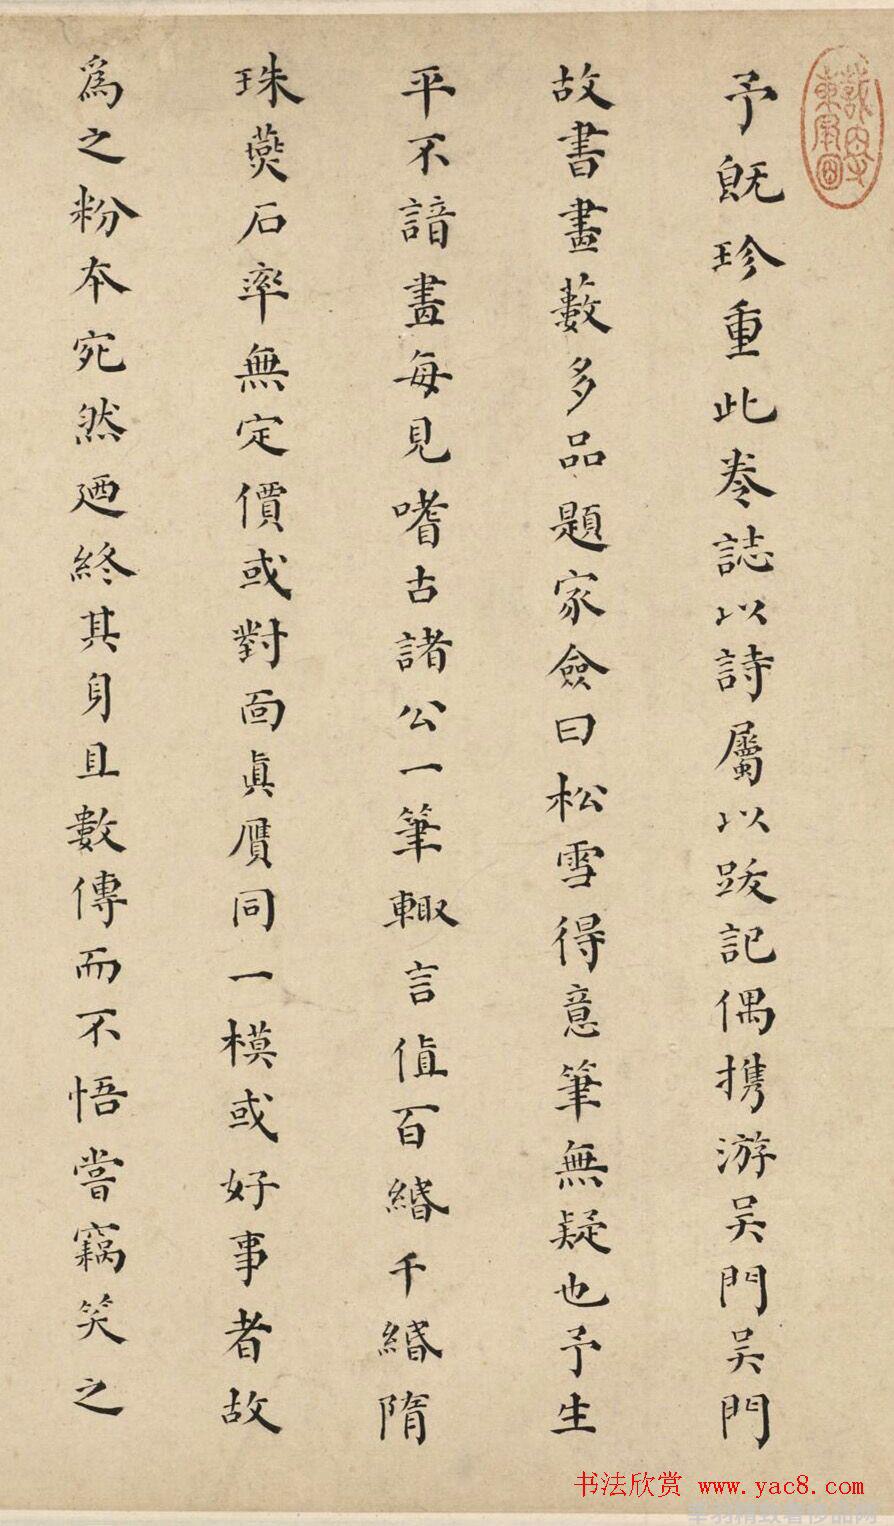 予旣珍重此卷誌以詩屬以跋記偶携游吴門吴門
故書畫藪多品題家僉曰松雪得意筆無疑也予生
平不諳畫每見嗜古諸公一筆輙言值百緡千緡隋
珠燕石率無定價或對面眞贋同一模或好事者故
爲之粉本宛然迺終其身且數傳而不悟嘗竊笑之
书法欣赏 www.yac8.com